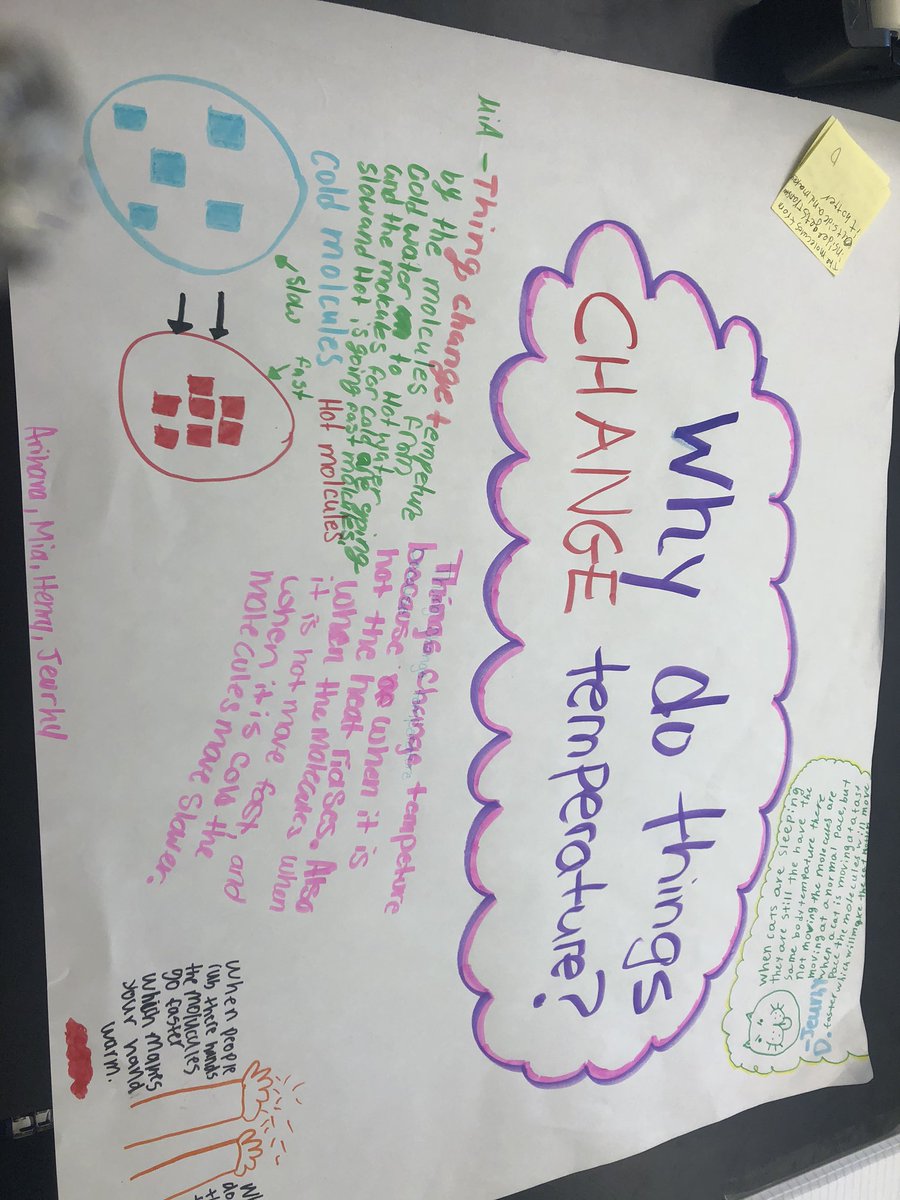 Why do things
CHANGE temperature?
it hotter
When cats are sleeping
they are still the have the
same body tempature there
not moving the molecules are
moving at a normal pace, but
when a cat is moving at a fast
pace the molecules will move
faster which will make the cat
-Jeurhy
MiA - Thing change tempeture
by the molcules from
Cold water to Hot water
and the molcules for cold are going
slow and Hot is going fast molcules.
Cold molcules
Hot molcules
slow
fast
Things change tempeture
because when it is
hot the heat riases. Also
when the molecules when
it is hot move fast and
when it is cold the
molecules move slower.
When people
rub there hands
the molucules
go faster
which makes
your hand
warm.
Arihana, Mia, Henry, Jeurhy